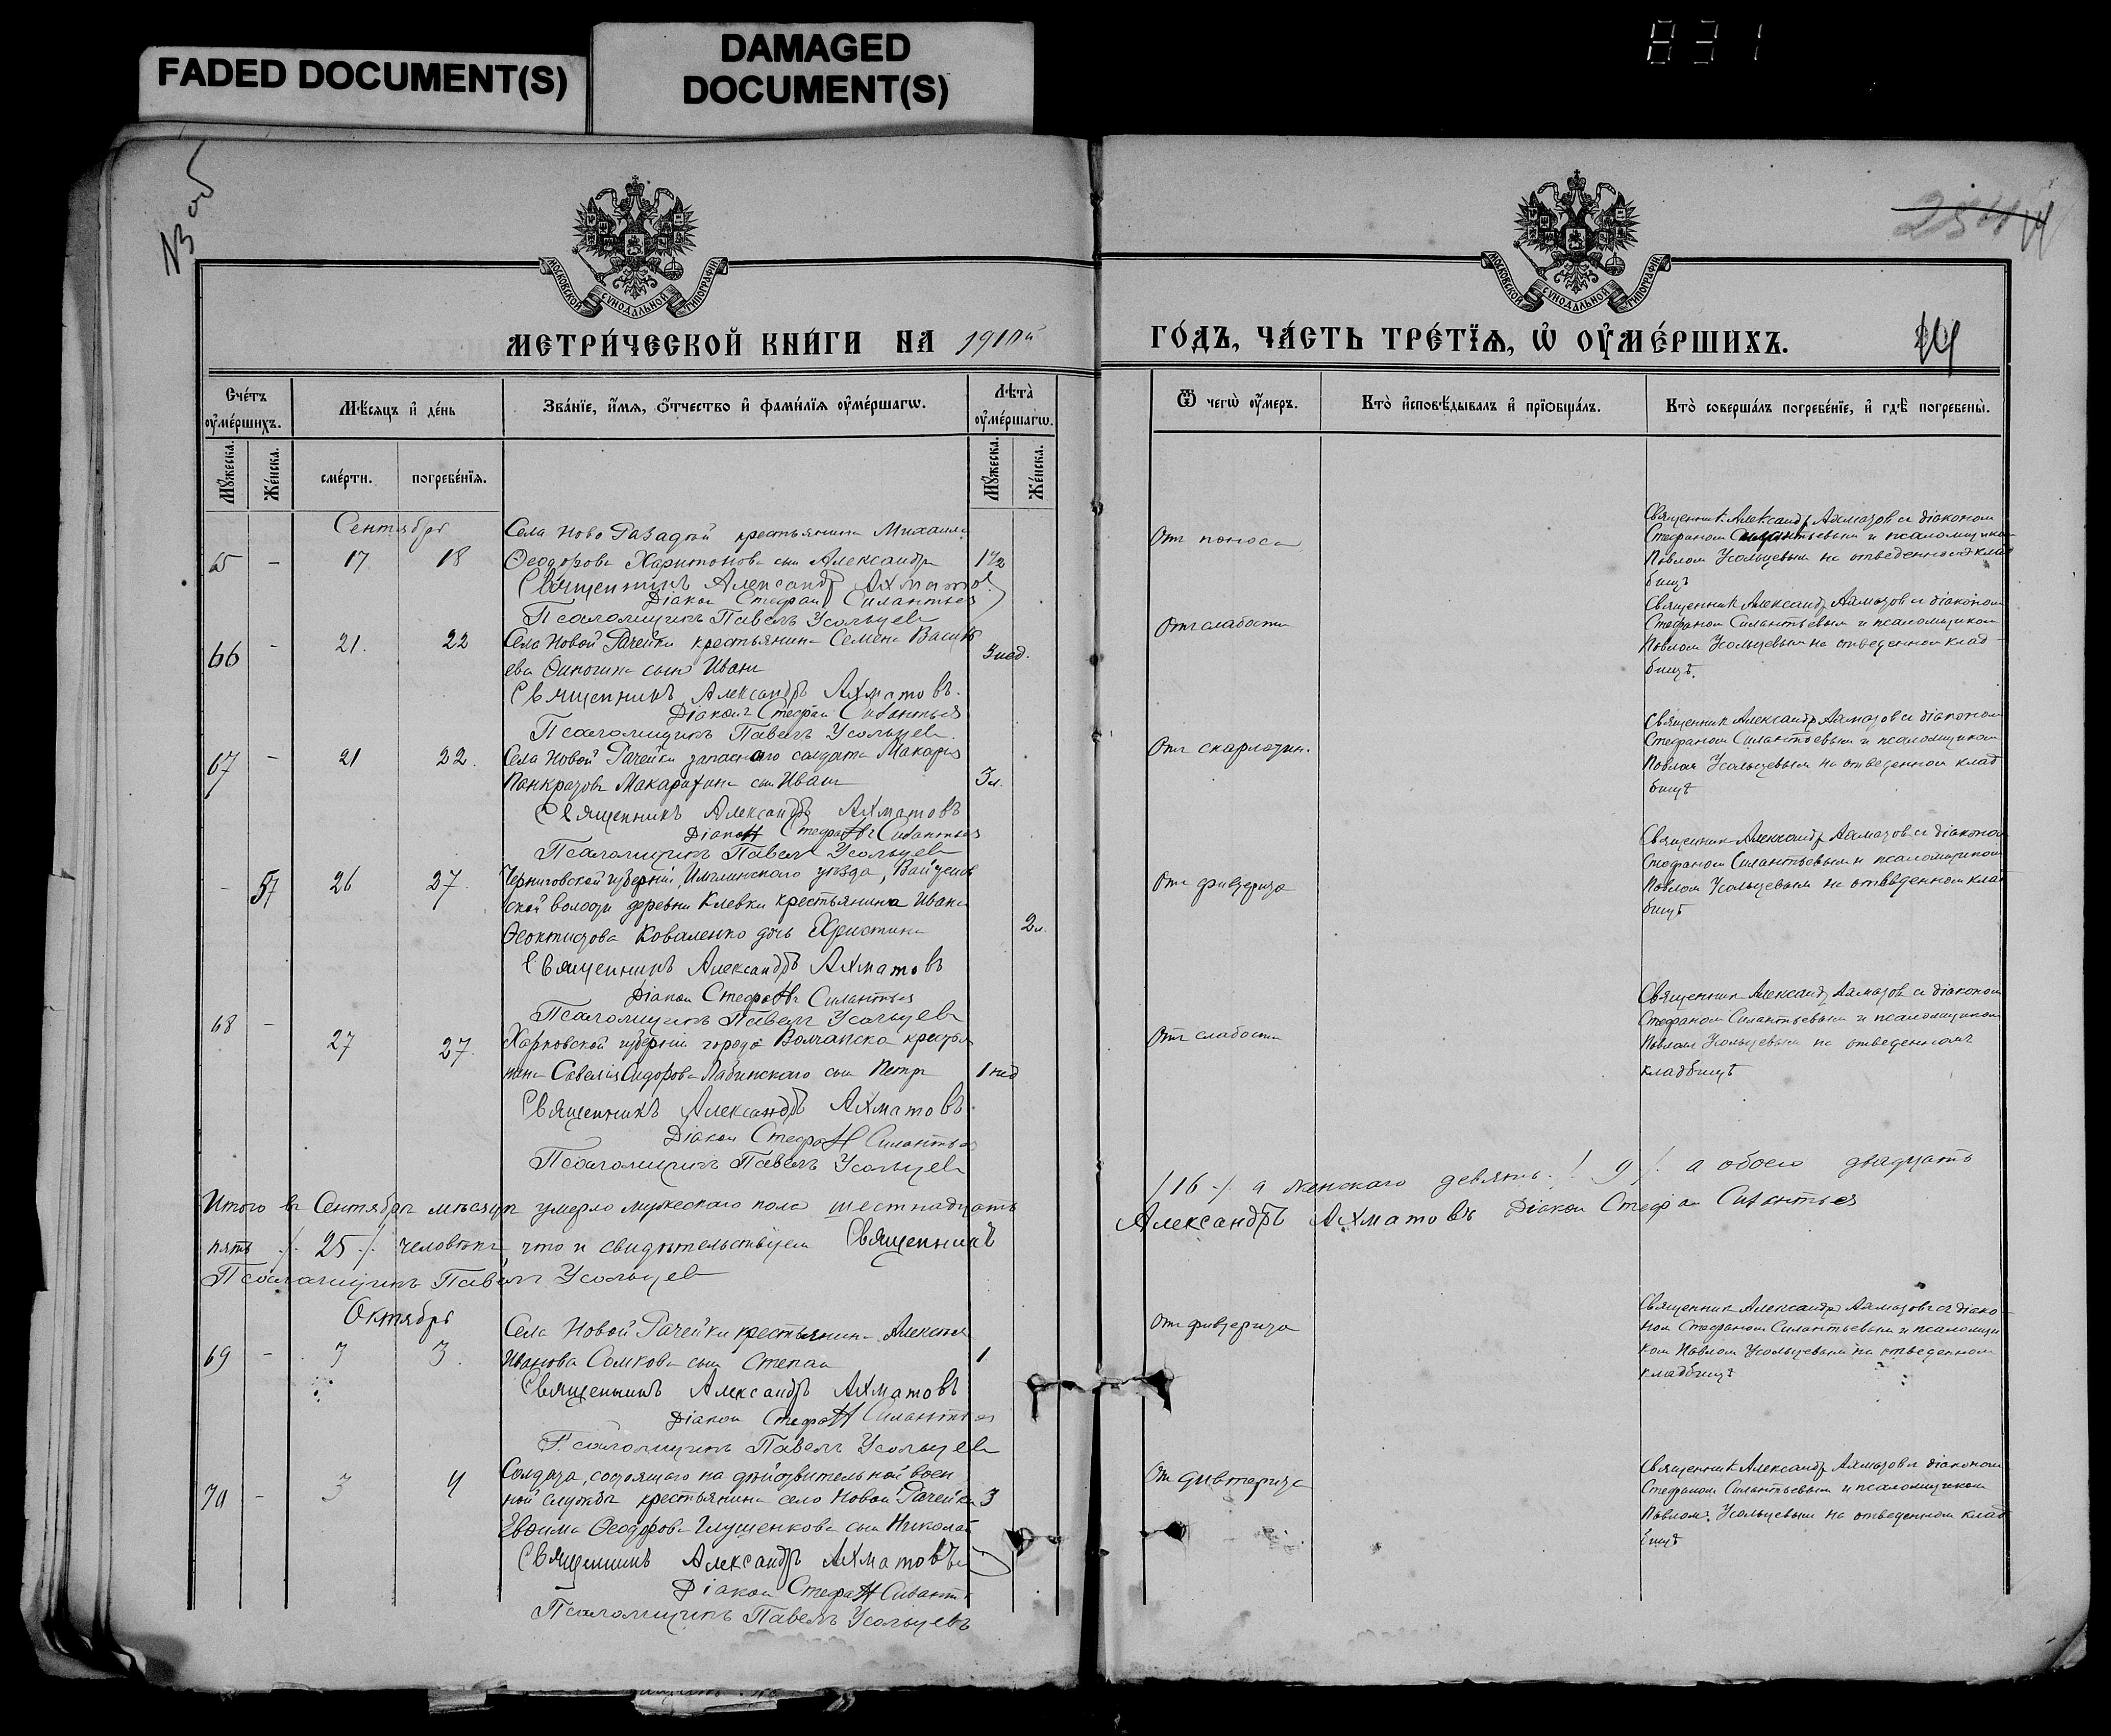 FADED DOCUMENT(S)
DAMAGED
DOCUMENT(S)
831
МОСКОВСКОЙ СѴНОДАЛЬНОЙ ТИПОГРАФІИ
МОСКОВСКОЙ СѴНОДАЛЬНОЙ ТИПОГРАФІИ
МЕТРИ́ЧЕСКОЙ КНИ́ГИ НА
ГО́ДЪ, ЧА́СТЬ ТРЕ́ТЇѦ, Ѡ҆ ОУ҆МЕ́РШИХЪ.
Счетъ оумершихъ.
Мѣсяцъ и день
Званіе, имя, отчество и фамилія оумершагѡ.
Лѣта оумершагѡ.
Ѿ чегѡ оумеръ.
Кто исповѣдывалъ и пріобщалъ.
Кто совершалъ погребеніе, и гдѣ погребены.
Мужеска.
Женска.
смерти.
погребенія.
Мужеска.
Женска.
Сентябрь
65 - 17 18
Села Ново крестьянина Михаила
Ѳеодорова Харитонова сын Александр 1½
Священникъ Александръ Ахматов
Діакон Стефан Силантьев
Псаломщикъ Павелъ Усольцев
От поноса
Священник Александр Ахматов с діаконом
Стефаном Силантьевым и псаломщиком
Павлом Усольцевым на отведенном клад
бищѣ
66 - 21. 22
Села Новой Рачейки крестьянина Семена Василь
ева сын Иван 3 нед.
Священникъ Александръ Ахматовъ.
Діаконъ Стефан Силантьев
Псаломщикъ Павелъ Усольцев.
От слабости
Священник Александр Ахматов с діаконом
Стефаном Силантьевым и псаломщиком
Павлом Усольцевым на отведенном клад-
бищѣ.
67 - 21 22.
Села Новой Рачейки запаснаго солдата Макария
Панкратова сын Иван 3 л.
Священникъ Александръ Ахматовъ
Діакон Стефанъ Силантьев
Псаломщикъ Павелъ Усольцев
От скарлатин.
Священник Александр Ахматов с діаконом
Стефаном Силантьевым и псаломщиком
Павлом Усольцевым на отведенном клад
бищѣ
- 57 26 27.
Черниговской губерніи, уѣзда,
ской волости деревни Клевки крестьянина Ивана
Ѳеоктистова Коваленко дочь Христина 2 л.
Священникъ Александръ Ахматовъ
Діакон Стефанъ Силантьев
Псаломщикъ Павелъ Усольцев
От дифтерита
Священник Александр Ахматов с діаконом
Стефаном Силантьевым и псаломщиком
Павлом Усольцевым на отведенном клад
бищѣ
68 - 27 27.
Харковской губерніи города Волчанска крестья
нина Савелія Сидорова сын Петр 1 нед
Священникъ Александръ Ахматовъ.
Діакон Стефан Силантьев
Псаломщикъ Павелъ Усольцев
От слабости
Священник Александр Ахматов с діаконом
Стефаном Силантьевым и псаломщиком
Павлом Усольцевым на отведенномъ
кладбищѣ
Итого въ Сентябрѣ мѣсяцѣ умерло мужескаго пола шестнадцать /16./ а женскаго девять. / 9 /. а обоего двадцать
пять ./. 25 ./. человѣкъ, что и свидѣтельствуем Священникъ Александръ Ахматовъ Діакон Стефан Силантьев
Псаломщикъ Павелъ Усольцев
Октябрь
69 - 3 3.
Села Новой Рачейки крестьянина Алексѣя
Иванова Сомкова сын Степан 1
Священникъ Александръ Ахматовъ
Діакон Стефан Силантьев
Псаломщикъ Павелъ Усольцев
От дифтерита
Священник Александр Ахматов с діако-
ном Стефаном Силантьевым и псаломщи
ком Павлом Усольцевым на отведенном
кладбищѣ
70 - 3 4
Солдата, состоящаго на дѣйствительной воен
ной службѣ крестьянина село Новой Рачейки 3
Евѳима Ѳеодорова Глущенкова сын Николай
Священникъ Александръ Ахматовъ
Діакон Стефан Силант
Псаломщикъ Павелъ Усольцевъ
От дифтерита
Священник Александр Ахматов с діаконом
Стефаном Силантьевым и псаломщиком
Павлом Усольцевым на отведенном клад
бищѣ